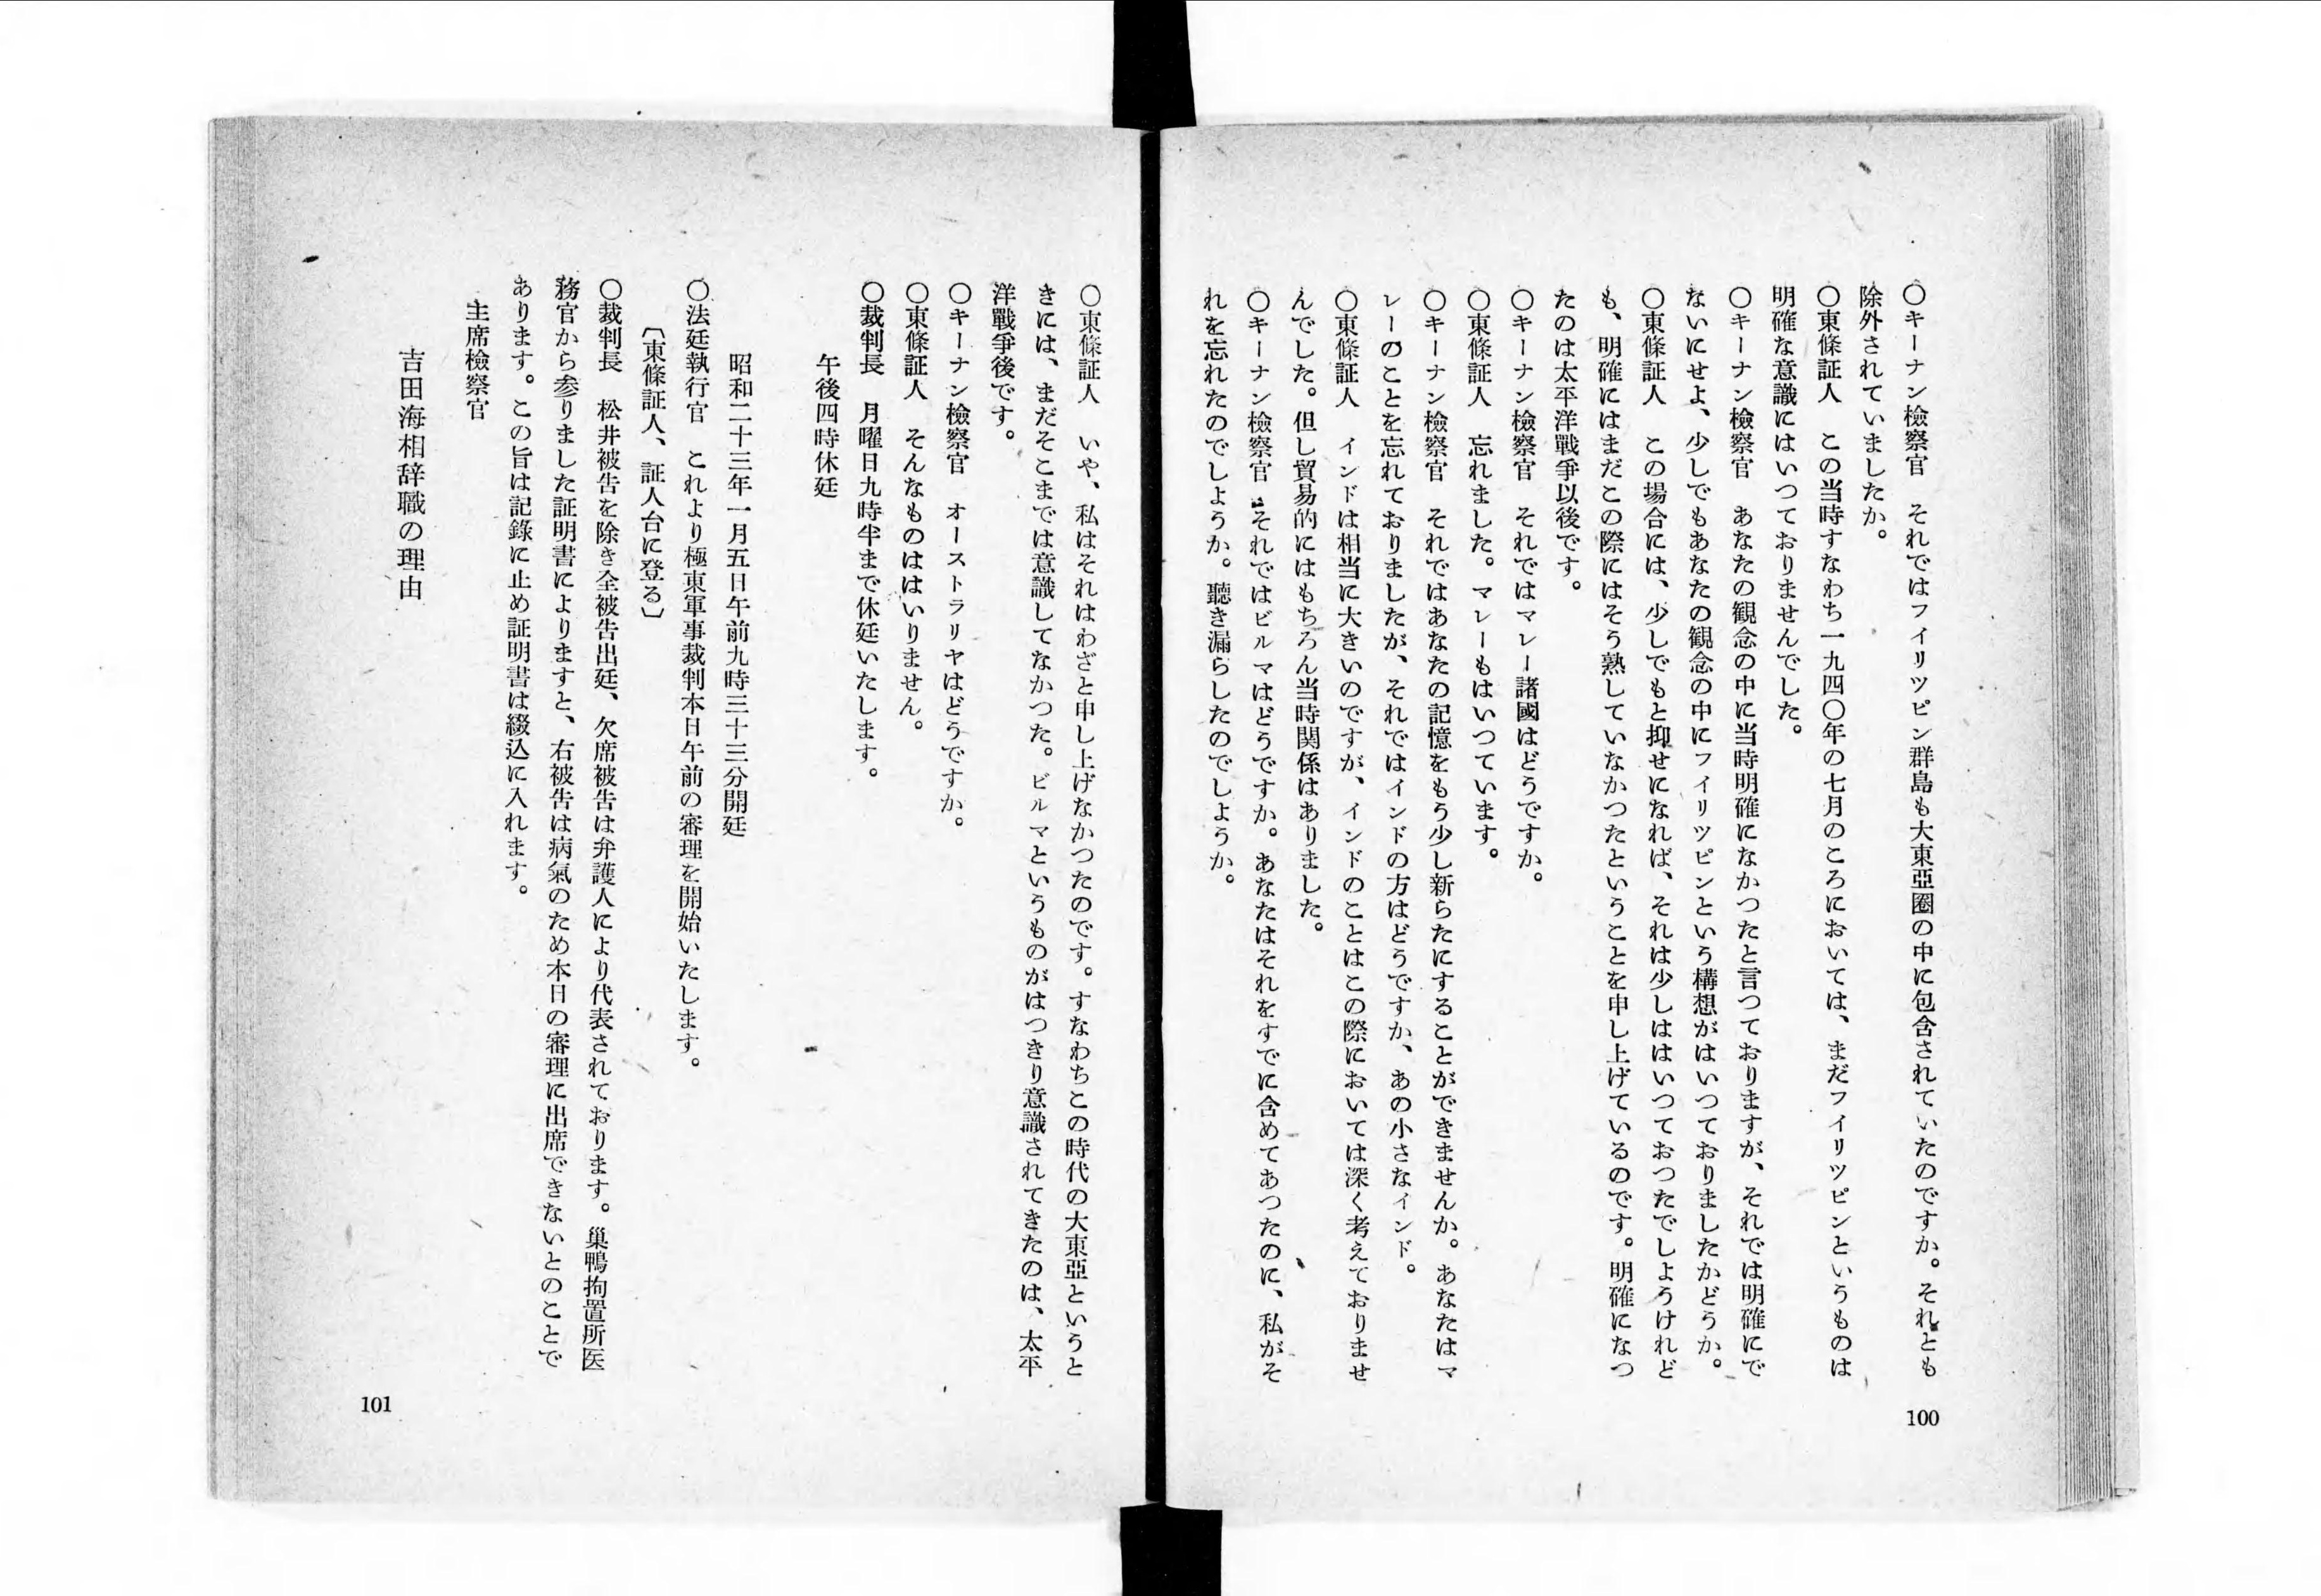 〇キーナン檢察官　それではフイリツピン群島も大東亞圏の中に包含されていたのですか。それとも
除外されていましたか。
〇東條証人　この当時すなわち一九四〇年の七月のころにおいては、まだフイリツピンというものは
明確な意識にはいつておりませんでした。
〇キーナン檢察官　あなたの観念の中に当時明確になかつたと言つておりますが、それでは明確にで
ないにせよ、少しでもあなたの観念の中にフイリツピンという構想がはいつておりましたかどうか。
〇東條証人　この場合には、少しでもと抑せになれば、それは少しははいつておつたでしようけれど
も、明確にはまだこの際にはそう熟していなかつたということを申し上げているのです。明確になつ
たのは太平洋戰爭以後です。
〇キーナン檢察官　それではマレー諸國はどうですか。
〇東條証人　忘れました。マレーもはいつています。
〇キーナン檢察官　それではあなたの記憶をもう少し新らたにすることができませんか。あなたはマ
レーのことを忘れておりましたが、それではインドの方はどうですか、あの小さなインド。
〇東條証人　インドは相当に大きいのですが、インドのことはこの際においては深く考えておりませ
んでした。但し貿易的にはもちろん当時関係はありました。
〇キーナン檢察官　それではビルマはどうですか。あなたはそれをすでに含めてあつたのに、私がそ
れを忘れたのでしようか。聽き漏らしたのでしようか。
100
〇東條証人　いや、私はそれはわざと申し上げなかつたのです。すなわちこの時代の大東亞というと
きには、まだそこまでは意識してなかつた。ビルマというものがはつきり意識されてきたのは、太平
洋戰爭後です。
〇キーナン檢察官　オーストラリヤはどうですか。
〇東條証人　そんなものははいりません。
〇裁判長　月曜日九時半まで休廷いたします。
午後四時休廷
昭和二十三年一月五日午前九時三十三分開廷
〇法廷執行官　これより極東軍事裁判本日午前の審理を開始いたします。
〔東條証人、証人台に登る〕
〇裁判長　松井被告を除き全被告出廷、欠席被告は弁護人により代表されております。巢鴨拘置所医
務官から参りました証明書によりますと、右被告は病氣のため本日の審理に出席できないとのことで
あります。この旨は記錄に止め証明書は綴込に入れます。
主席檢察官
吉田海相辞職の理由
101